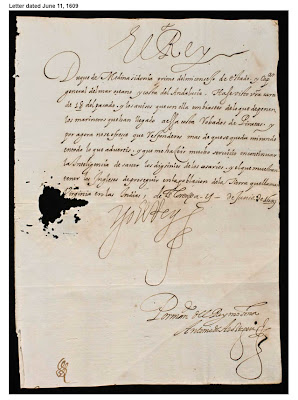 Letter dated June 11, 1609
El Rey
Duque de Medina sidonia primo del mi consejo de estado, y Capn
general del mar oceano y costa del Andaluzia. Hase visto vra carta
de 18 del passado, y los autos que en ella embiastes de lo que deponen
los marineros que han llegado a essa costa Robados de
y por agora no se ofrece que responderos mas de que queda mirando
en todo lo que advertis, y que me hareis mucho servicio en continuar
la inteligencia de saver los designios de los cosarios, y el que muestran
tener los Ingleses de proseguir en la poblacion de la tierra que llaman
Virginia en las Indias, de a - Y - de Junio de 1609
Yo el Rey
Por mandado del Rey nro señor
Antonio de